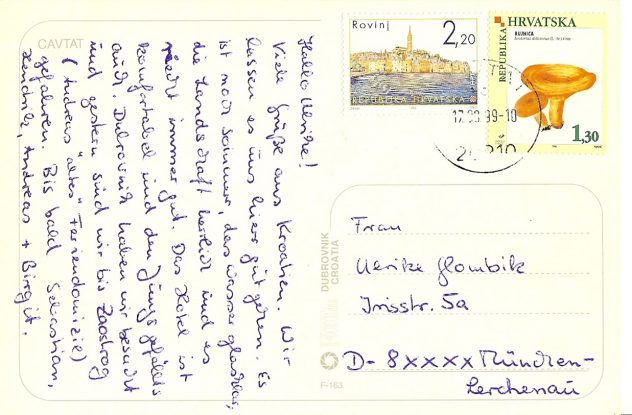 CAVTAT
Hallo Ulrike!
Viele Grüße aus Kroatien. Wir
lassen es uns hier gut gehen. Es
ist noch Sommer, das Wasser glasklar,
die Landschaft herrlich und es
riecht immer gut. Das Hotel ist
komfortabel und den Jungs gefällts
auch. Dubrovnik haben wir besucht
und gestern sind wir bis Zaostrog
(Andreas "altes" Feriendomizil)
gefahren. Bis bald Sebastian,
Hendrik, Andreas + Birgit.
Rovinj
2,20
REPUBLIKA HRVATSKA
REPUBLIKA HRVATSKA
RUJNICA
1,30
99-10
20210
DUBROVNIK
CROATIA
F-163
Frau
Ulrike Glombik
Irisstr. 5a
D- 8XXXX München-
Lerchenau